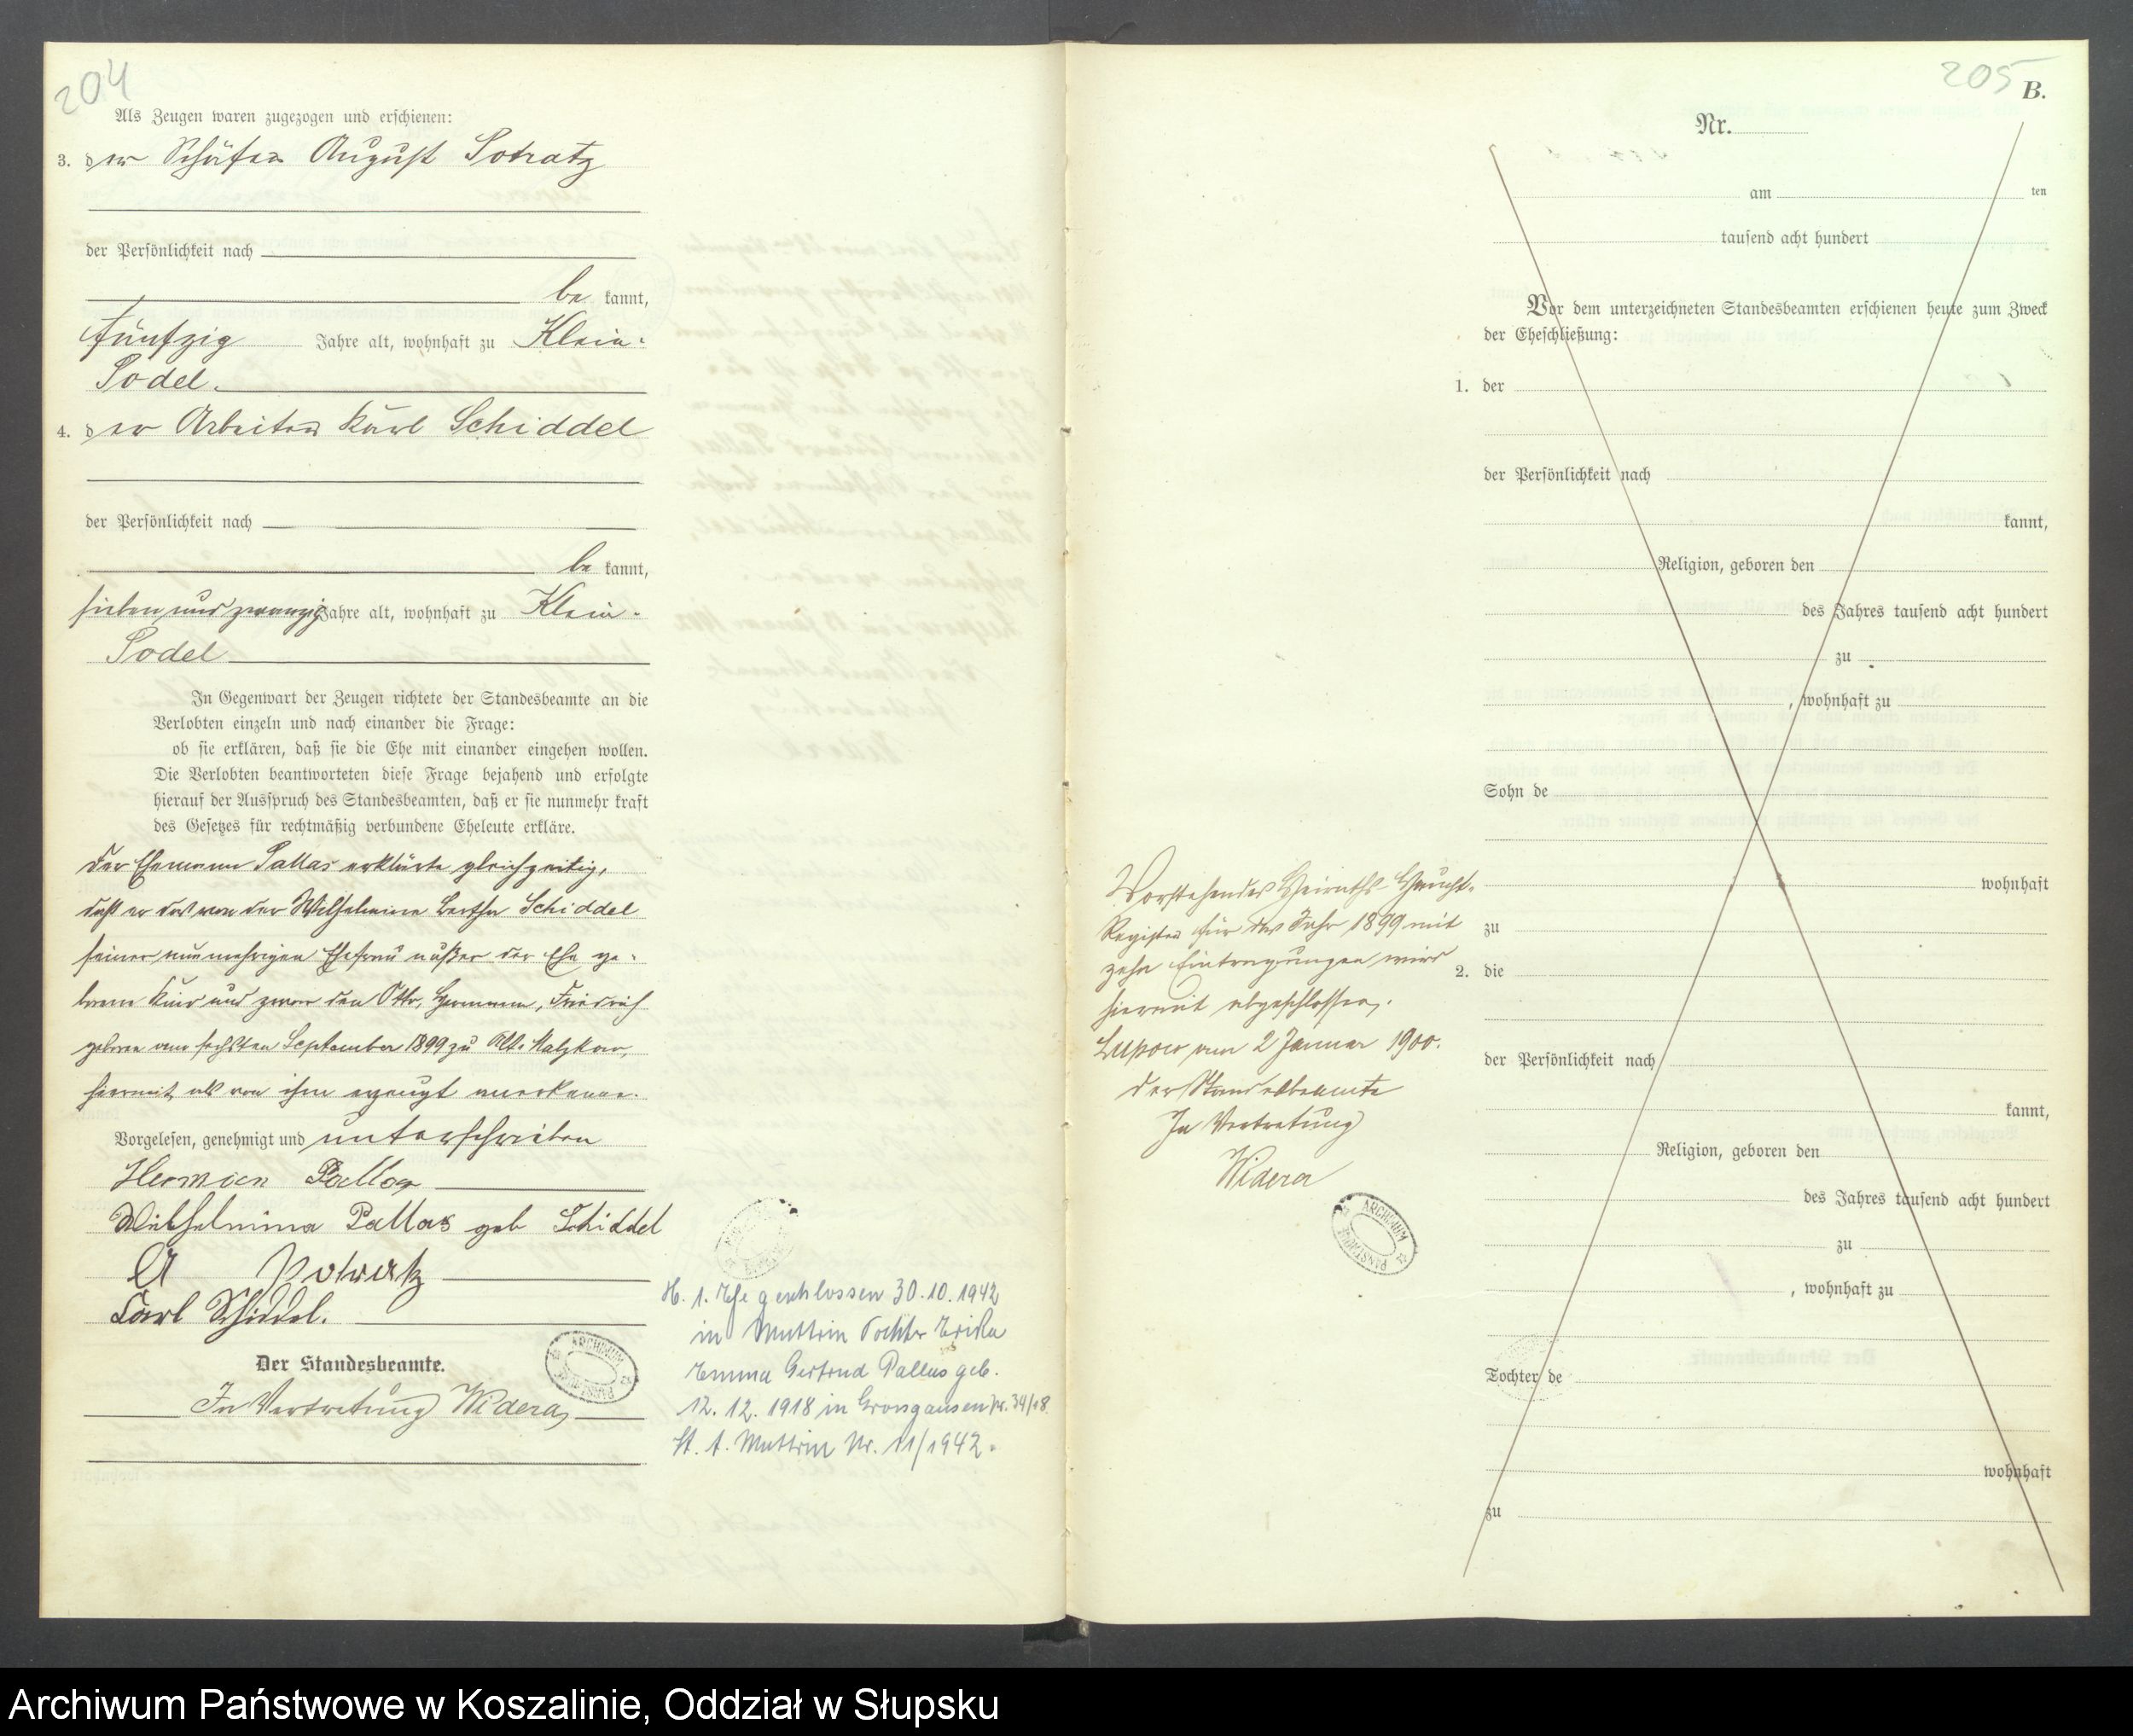 204
Als Zeugen waren zugezogen und erschienen:
3. der Schäfer August Potratz
der Persönlichkeit nach
be kannt,
fünfzig Jahre alt, wohnhaft zu Klein-
Podel.
4. der Arbeiter Karl Schiddel
der Persönlichkeit nach
be kannt,
sieben und zwanzig Jahre alt, wohnhaft zu Klein-
Podel
In Gegenwart der Zeugen richtete der Standesbeamte an die
Verlobten einzeln und nach einander die Frage:
ob sie erklären, daß sie die Ehe mit einander eingehen wollen.
Die Verlobten beantworteten diese Frage bejahend und erfolgte
hierauf der Ausspruch des Standesbeamten, daß er sie nunmehr kraft
des Gesetzes für rechtmäßig verbundene Eheleute erkläre.
Der Ehemann Pallas erklärte gleichzeitig,
daß er das von der Wilhelmine Bertha Schiddel
seiner nunmehrigen Ehefrau außer der Ehe ge-
borene Kind und zwar den Otto, Hermann, Friedrich
geboren am sechsten September 1899 zu Alt-Malzkow,
hiermit als von ihm erzeugt anerkenne.
Vorgelesen, genehmigt und unterschrieben
Herman Pallas
Wilhelmina Pallas geb Schiddel
A Potratz
Karl Schiddel.
Der Standesbeamte.
In Vertretung Widera
ARCHIWUM PAŃSTWOWE
H. 1. Ehe geschlossen 30.10.1942
in Muttrin Tochter Erika
Emma Gertrud Pallas geb.
12.12.1918 in Grossgansen Nr. 34/18.
St. A. Muttrin Nr. 11/1942.
Vorstehendes Heiraths-Haupt-
Register für das Jahr 1899 mit
zehn Eintragungen wird
hiermit abgeschlossen.
Lupow am 2 Januar 1900.
Der Standesbeamte
In Vertretung
Widera
ARCHIWUM PAŃSTWOWE
205
B.
Nr.
am ten
tausend acht hundert
Vor dem unterzeichneten Standesbeamten erschienen heute zum Zweck
der Eheschließung:
1. der
der Persönlichkeit nach
kannt,
Religion, geboren den
des Jahres tausend acht hundert
zu
, wohnhaft zu
Sohn de
wohnhaft
zu
2. die
der Persönlichkeit nach
kannt,
Religion, geboren den
des Jahres tausend acht hundert
zu
, wohnhaft zu
Tochter de
wohnhaft
zu
Archiwum Państwowe w Koszalinie, Oddział w Słupsku